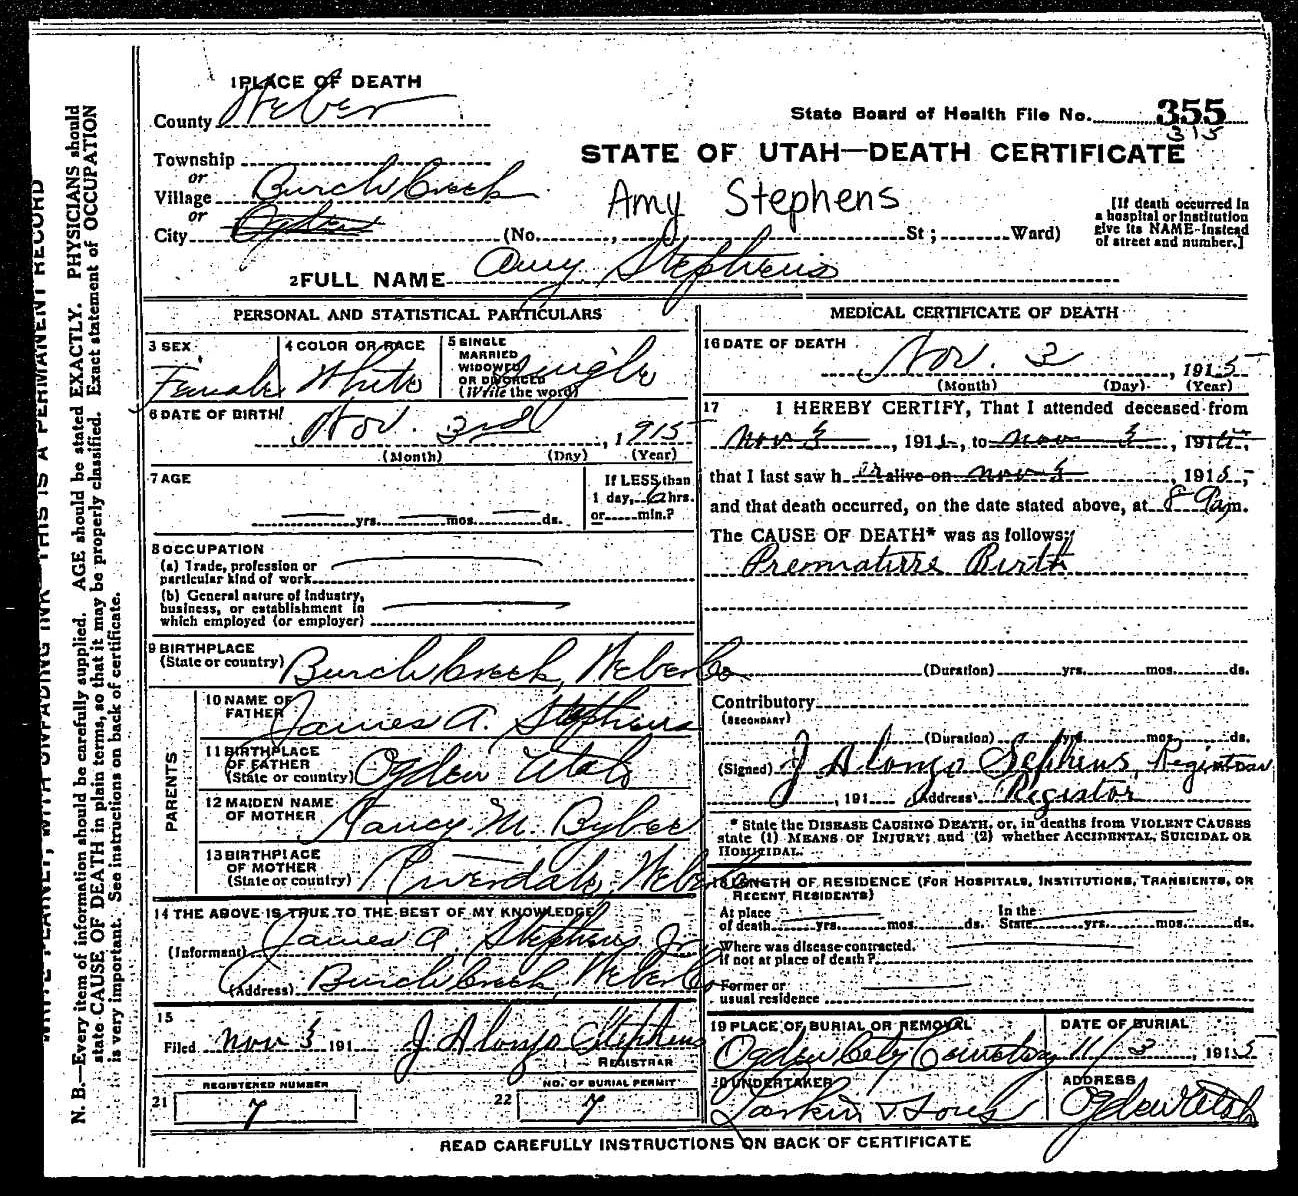 1 PLACE OF DEATH
County Weber
State Board of Health File No. 355
315
STATE OF UTAH—DEATH CERTIFICATE
Township
or
Village Burch Creek
or
City Ogden
Amy Stephens
(No. , St ; Ward)
[If death occurred in
a hospital or institution
give its NAME instead
of street and number.]
2 FULL NAME Amy Stephens
PERSONAL AND STATISTICAL PARTICULARS
3 SEX Female
4 COLOR OR RACE White
5 SINGLE
MARRIED
WIDOWED
OR DIVORCED
(Write the word) Single
6 DATE OF BIRTH Nov. 3rd , 1915
(Month) (Day) (Year)
7 AGE
yrs. mos. ds.
If LESS than
1 day, 6 hrs.
or min.?
8 OCCUPATION
(a) Trade, profession or
particular kind of work
(b) General nature of industry,
business, or establishment in
which employed (or employer)
9 BIRTHPLACE
(State or country) Burch Creek, Weber Co
PARENTS
10 NAME OF
FATHER James A. Stephens
11 BIRTHPLACE
OF FATHER
(State or country) Ogden Utah
12 MAIDEN NAME
OF MOTHER Nancy M. Bybee
13 BIRTHPLACE
OF MOTHER
(State or country) Riverdale, Weber Co
14 THE ABOVE IS TRUE TO THE BEST OF MY KNOWLEDGE
(Informant) James A. Stephens Jr.
(Address) Burch Creek, Weber Co
15
Filed Nov 3 191 J Alonzo Stephens
REGISTRAR
REGISTERED NUMBER
21 7
NO. OF BURIAL PERMIT
22 7
MEDICAL CERTIFICATE OF DEATH
16 DATE OF DEATH
Nov. 3 , 1915
(Month) (Day) (Year)
17 I HEREBY CERTIFY, That I attended deceased from
Nov 3 , 191 , to Nov 3 , 191
that I last saw h er alive on Nov 3 , 1915,
and that death occurred, on the date stated above, at 8 9 a.m.
The CAUSE OF DEATH* was as follows:
Premature Birth
(Duration) yrs. mos. ds.
Contributory
(SECONDARY)
(Duration) yrs. mos. ds.
(Signed) J Alonzo Sephens, Registrar
, 191 (Address) Registor
* State the DISEASE CAUSING DEATH, or, in deaths from VIOLENT CAUSES
state (1) MEANS OF INJURY; and (2) whether ACCIDENTAL, SUICIDAL OR
HOMICIDAL.
18 LENGTH OF RESIDENCE (FOR HOSPITALS, INSTITUTIONS, TRANSIENTS, OR
RECENT RESIDENTS)
At place
of death yrs. mos. ds.
In the
State yrs. mos. ds.
Where was disease contracted,
if not at place of death?
Former or
usual residence
19 PLACE OF BURIAL OR REMOVAL
Ogden City Cemetery
DATE OF BURIAL
11/3 , 1915
20 UNDERTAKER
Larkin & Sons
ADDRESS
Ogden Utah
READ CAREFULLY INSTRUCTIONS ON BACK OF CERTIFICATE
WRITE PLAINLY, WITH UNFADING INK—THIS IS A PERMANENT RECORD
N. B.—Every item of information should be carefully supplied. AGE should be stated EXACTLY. PHYSICIANS should
state CAUSE OF DEATH in plain terms, so that it may be properly classified. Exact statement of OCCUPATION
is very important. See instructions on back of certificate.